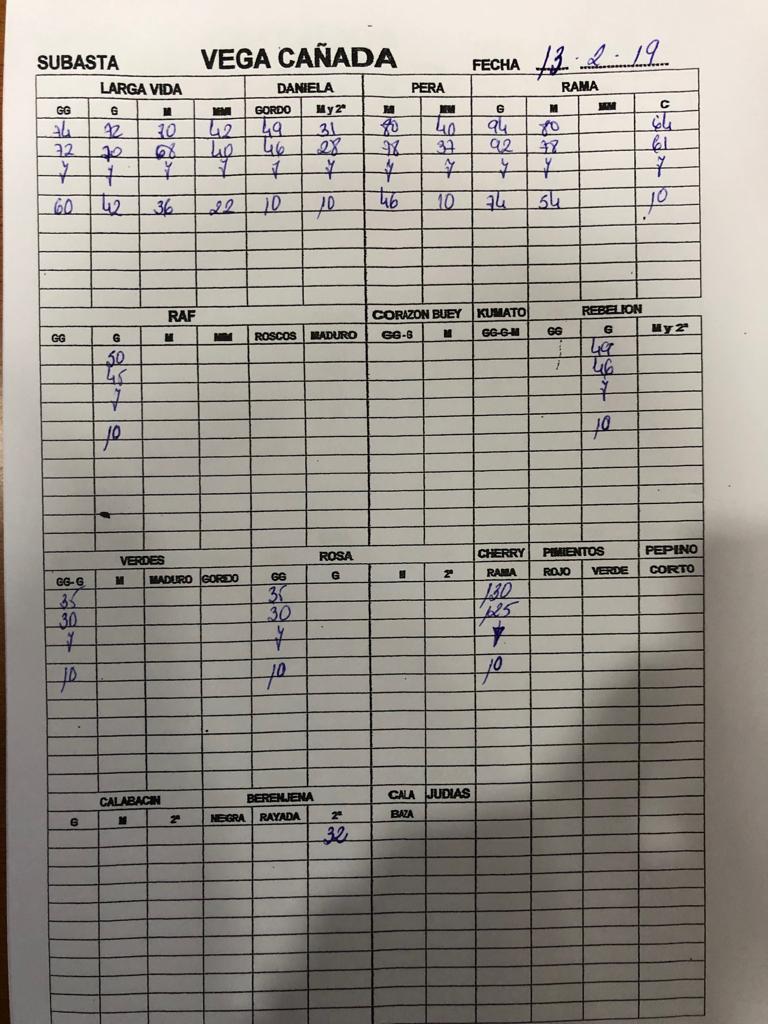 SUBASTA VEGA CAÑADA FECHA 13-2-19
LARGA VIDA DANIELA PERA RAMA
GG G M MM GORDO M y 2ª M MM G M MM C
74 72 70 42 49 31 80 40 94 80 64
72 70 68 40 46 28 78 37 92 78 61
y y y y y y y y y y y
60 42 36 22 10 10 46 10 74 54 10
RAF CORAZON BUEY KUMATO REBELION
GG G M MM ROSCOS MADURO GG-G M GG-G-M GG G M y 2ª
50 49
45 46
y y
10 10
VERDES ROSA CHERRY PIMIENTOS PEPINO
GG-G M MADURO GORDO GG G M 2ª RAMA ROJO VERDE CORTO
35 35 130
30 30 125
y y y
10 10 10
CALABACIN BERENJENA CALA JUDIAS
G M 2ª NEGRA RAYADA 2ª BAZA
32